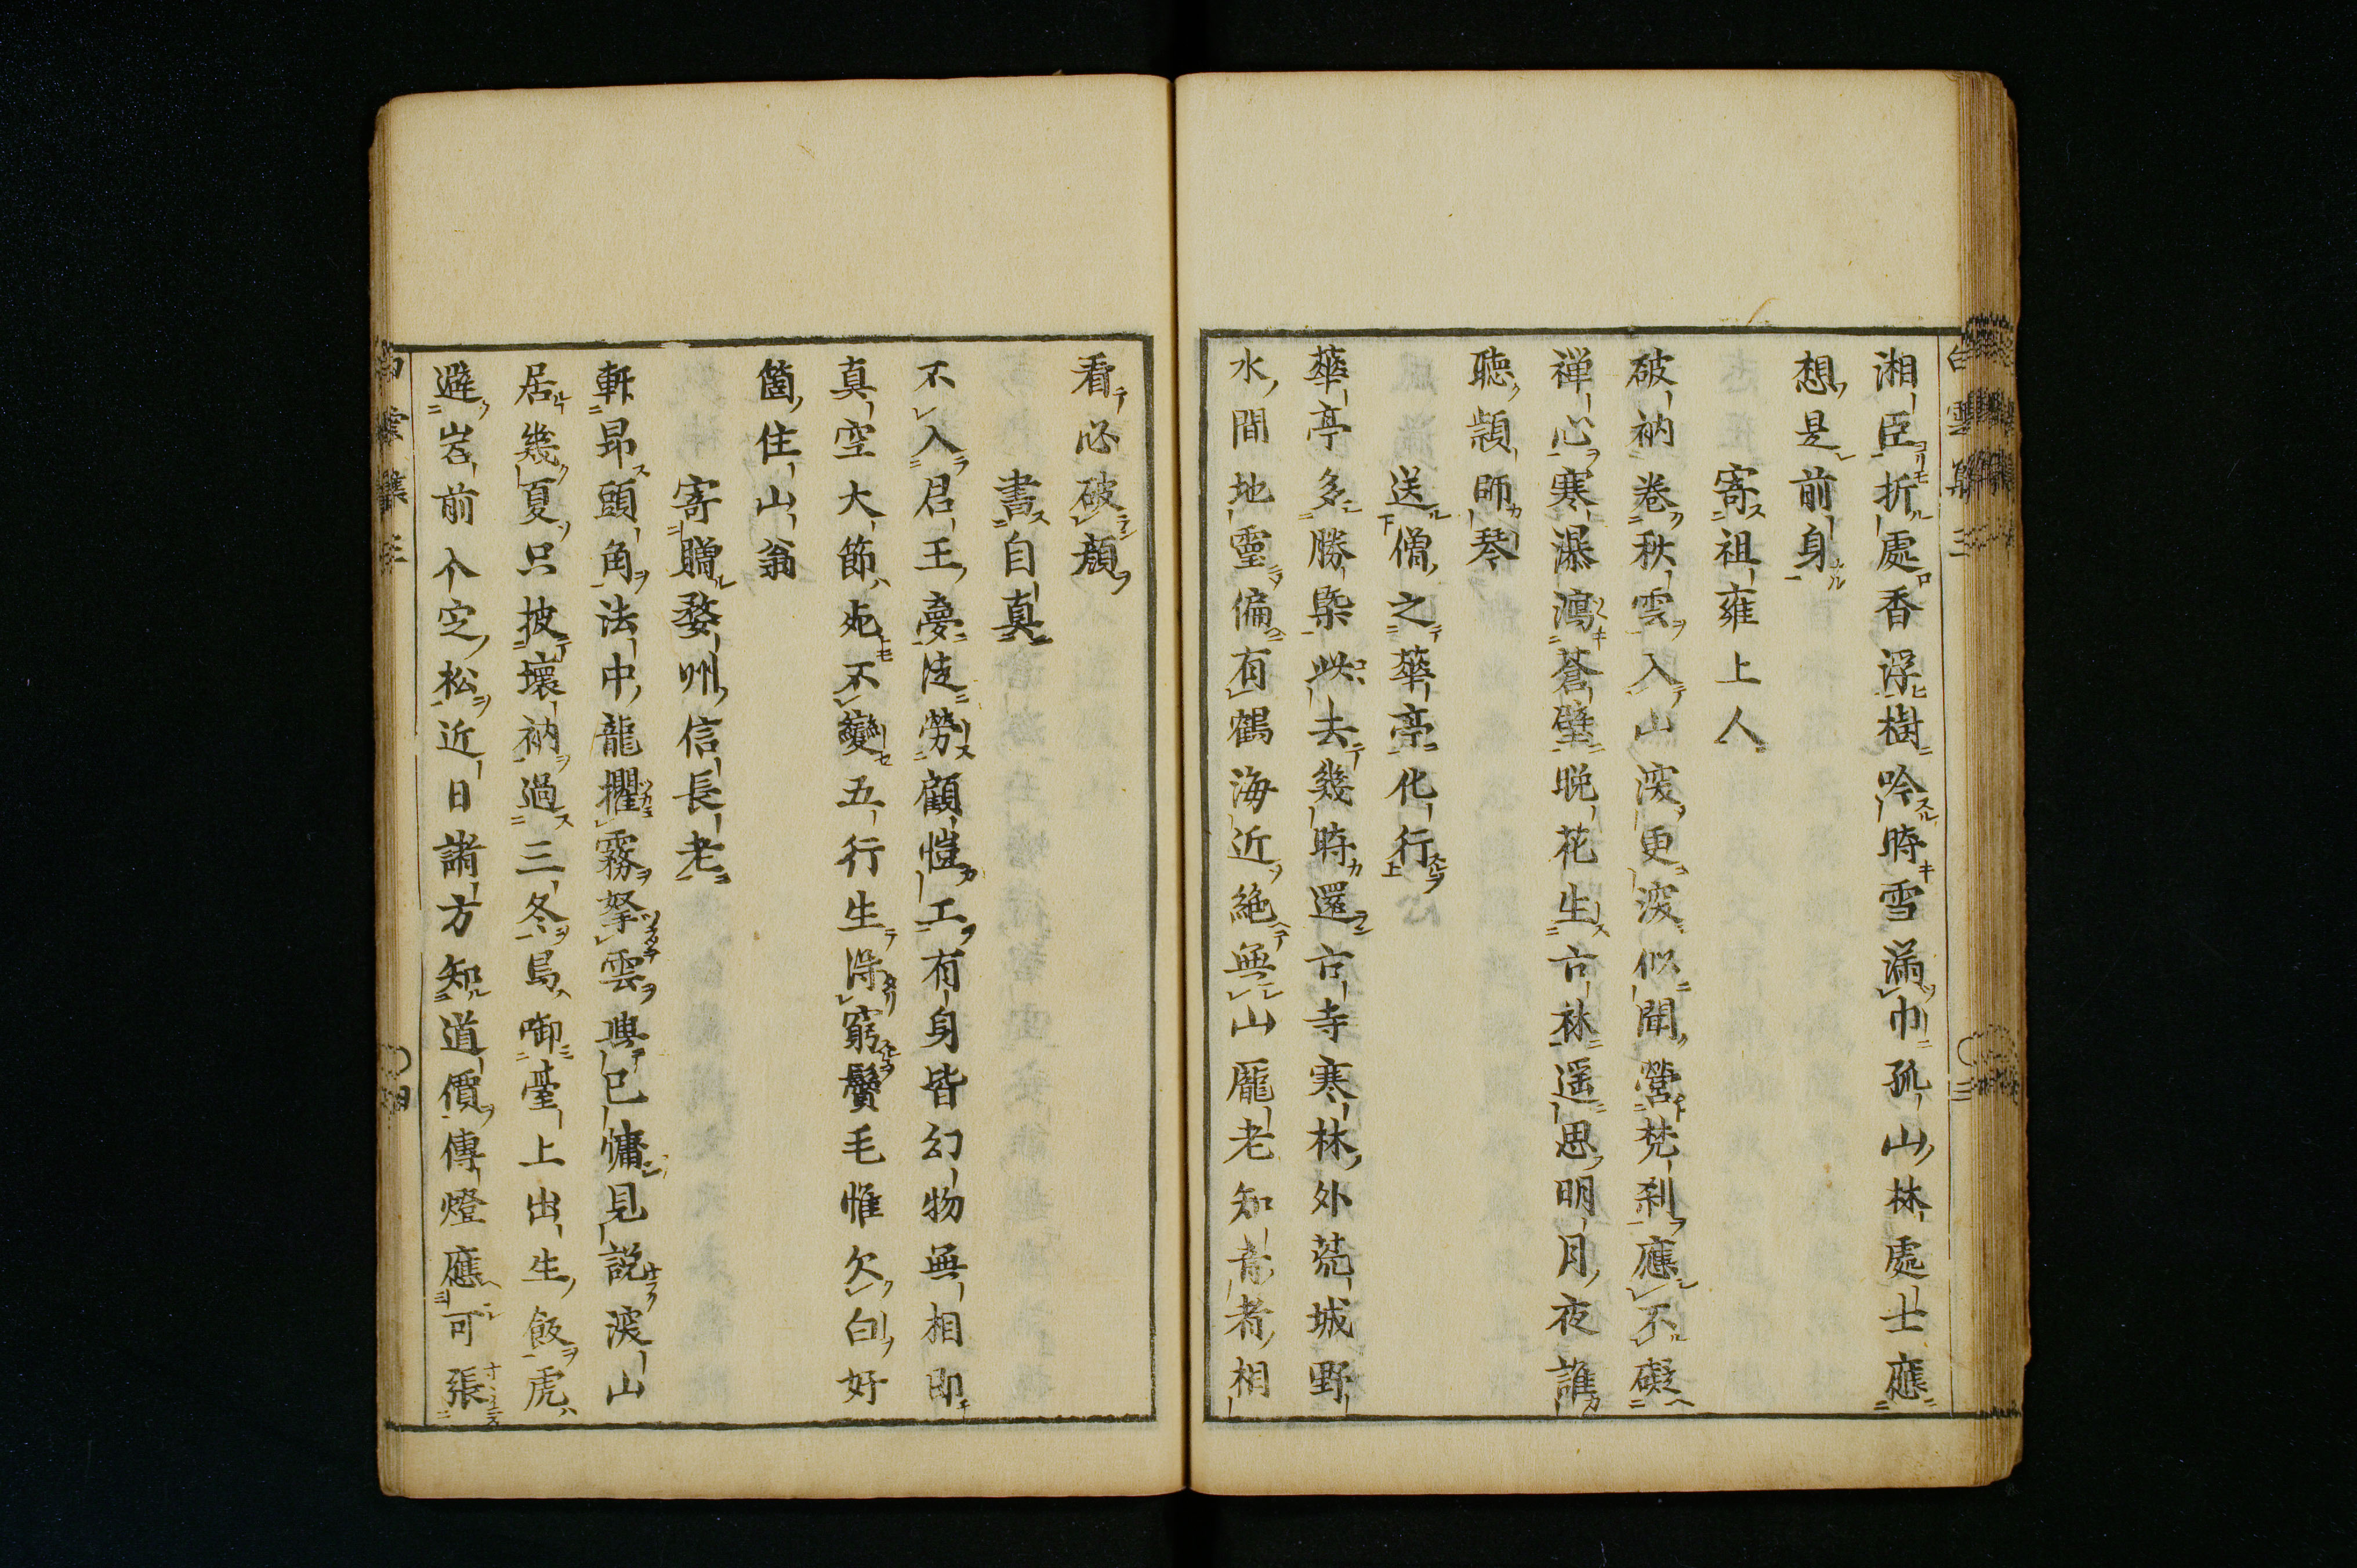 湘臣折處香浮樹吟時雪滿巾孤山林處士應
想是前身
寄祖雍上人
破衲卷秋雲入山深更深似聞營梵刹應不礙
禅心寒瀑瀉蒼壁晚花生古林遥思明月夜誰
聴頴師琴
送僧之華亭化行
華亭多勝槩此去幾時還古寺寒林外荒城野
水間地靈偏有鶴海近絶無山龐老知音者相
看必破顔
書自真
不入君王夢徒勞顧愷工有身皆幻物無相即
真空大節死不變五行生得窮鬢毛惟欠白好
箇住山翁
寄贈婺州信長老
軒昂頭角法中龍攫霧拏雲興已慵見説深山
居幾夏只披壞衲過三冬鳥啣臺上出生飯虎
避岩前个定松近日諸方知道價傳燈應可張
白雲集三
三